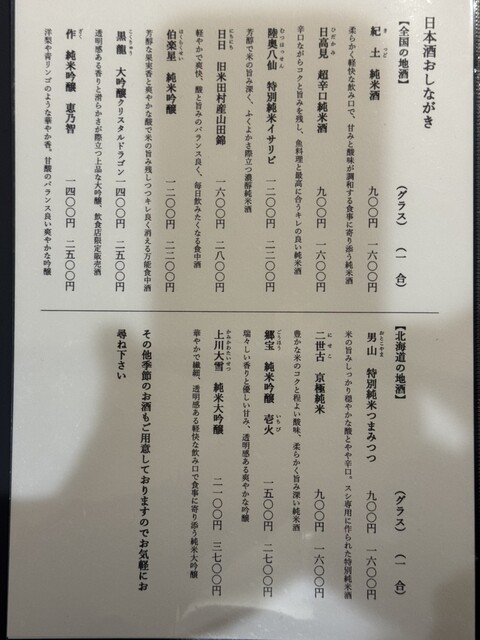 日本酒おしながき
【全国の地酒】　（グラス）　（一合）
紀土　純米酒　九〇〇円　一六〇〇円
柔らかく軽快な飲み口で、甘みと酸味が調和する食事に寄り添う純米酒
日高見　超辛口純米酒　九〇〇円　一六〇〇円
辛口ながらコクと旨みを残し、魚料理と最高に合うキレの良い純米酒
陸奥八仙　特別純米イサリビ　一二〇〇円　二二〇〇円
芳醇で米の旨み深く、ふくよかさ際立つ濃醇純米酒
日日　旧米田村産山田錦　一六〇〇円　二八〇〇円
軽やかで爽快、酸と旨みのバランス良く、毎日飲みたくなる食中酒
伯楽星　純米吟醸　一二〇〇円　二二〇〇円
芳醇な果実香と爽やかな酸で米の旨み残しつつキレ良く消える万能食中酒
黒龍　大吟醸クリスタルドラゴン　一四〇〇円　二五〇〇円
透明感ある香りと滑らかさが際立つ上品な大吟醸、飲食店限定販売酒
作　純米吟醸　恵乃智　一四〇〇円　二五〇〇円
洋梨や青リンゴのような華やか香。甘酸のバランス良い爽やかな吟醸
【北海道の地酒】　（グラス）　（一合）
男山　特別純米つまみつつ　九〇〇円　一六〇〇円
米の旨みしっかり穏やかな酸とやや辛口。スシ専用に作られた特別純米酒
二世古　京極純米　九〇〇円　一六〇〇円
豊かな米のコクと程よい酸味、柔らかく旨み深い純米酒
郷宝　純米吟醸　壱火　一五〇〇円　二七〇〇円
瑞々しい香りと優しい甘み、透明感ある爽やかな吟醸
上川大雪　純米大吟醸　二一〇〇円　三七〇〇円
華やかで繊細、透明感ある軽快な飲み口で食事に寄り添う純米大吟醸
その他季節のお酒もご用意しておりますのでお気軽にお
尋ね下さい